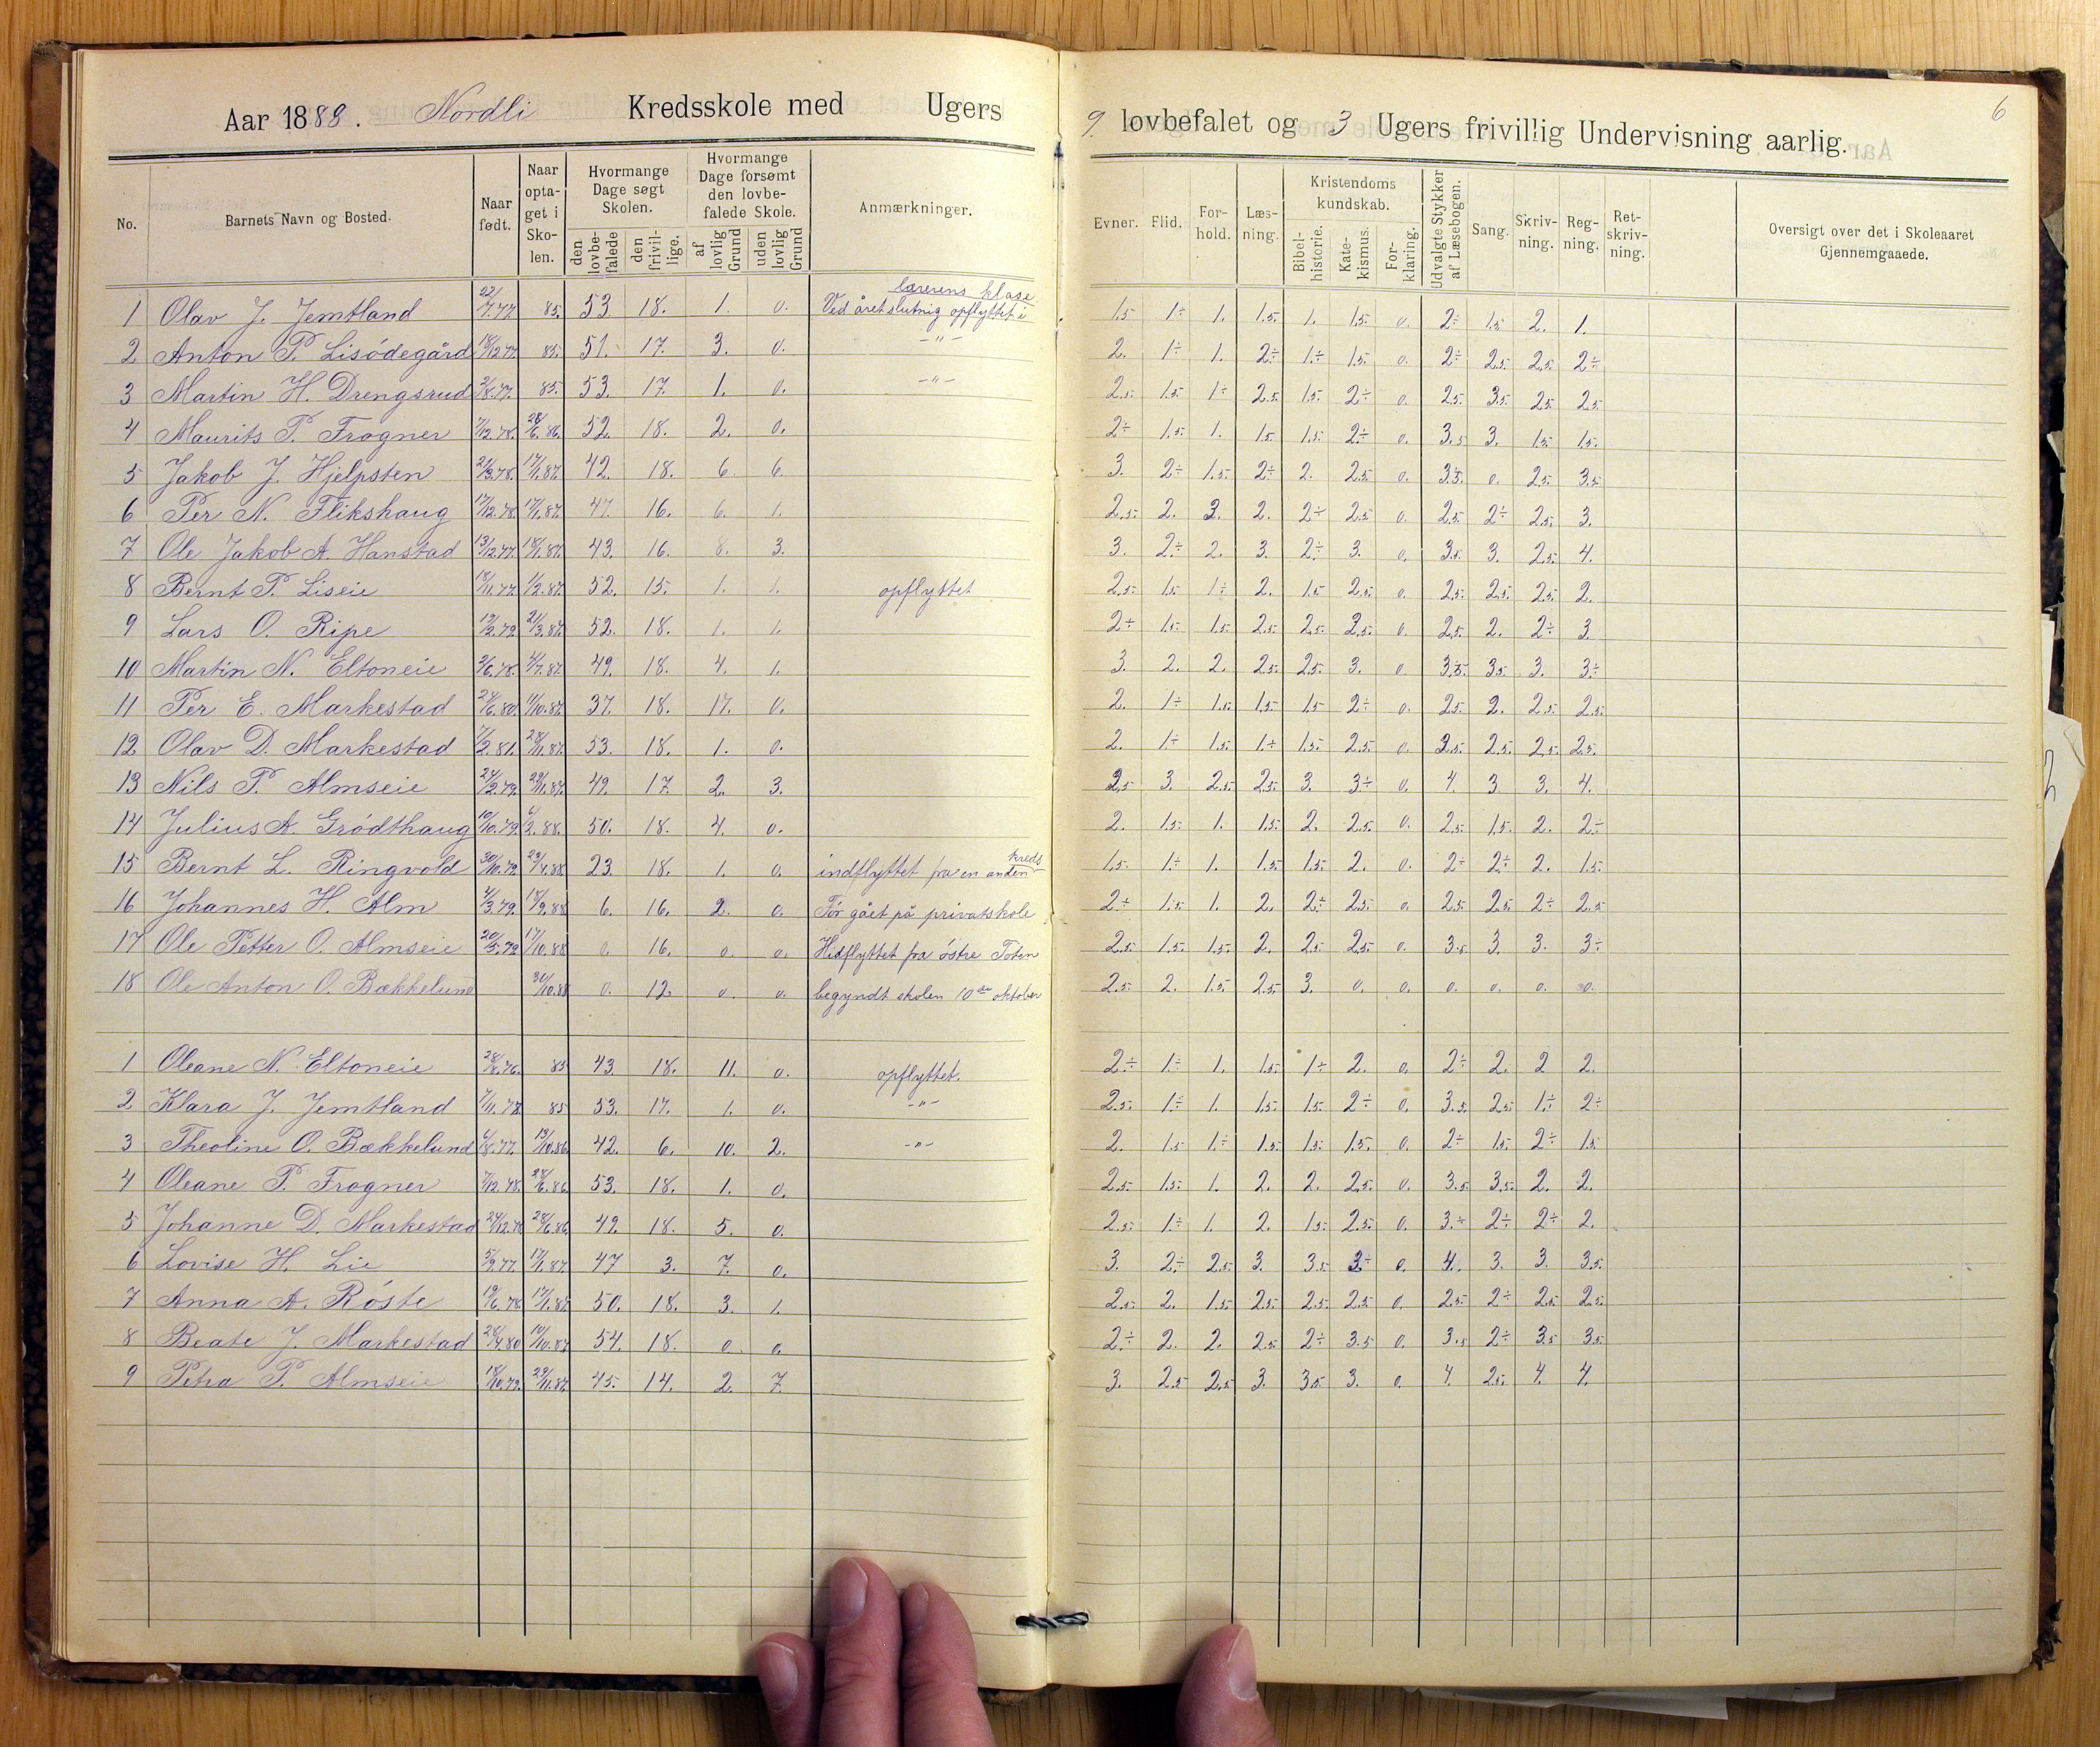 Aar 1888. Nordli Kredsskole med Ugers
No. Barnets Navn og Bosted. Naar født. Naar optaget i Skolen. Hvormange Dage søgt Skolen. den lovbefalede den frivillige. Hvormange Dage forsømt den lovbefalede Skole. af lovlig Grund uden lovlig Grund Anmærkninger.
lærerens klase
1 Olav J. Jemtland 22/7.77. 85. 53. 18. 1. 0. Ved året slutnig opflyttet i
2 Anton P. Lisödegård 18/12.77. 85. 51. 17. 3. 0. -"-
3 Martin H. Drengsrud 2/8.77. 85. 53. 17. 1. 0. -"-
4 Maurits P. Frogner 7/12.78. 28/6.86. 52. 18. 2. 0.
5 Jakob J. Hjelpsten 21/3.78. 17/1.87. 42. 18. 6. 6.
6 Per N. Flikshaug 17/12.78. 17/1.87. 47. 16. 6. 1.
7 Ole Jakob A. Hanstad 13/12.77. 18/1.87. 43. 16. 8. 3.
8 Bernt P. Liseie 18/11.77. 1/2.87. 52. 15. 1. 1. opflyttet
9 Lars O. Ripe 19/2.79. 21/3.87. 52. 18. 1. 1.
10 Martin N. Eltoneie 2/6.78. 4/7.87. 49. 18. 4. 1.
11 Per E. Markestad 24/6.80. 11/10.87. 37. 18. 17. 0.
12 Olav D. Markestad 7/2.81. 28/11.87. 53. 18. 1. 0.
13 Nils P. Almseie 24/2.79. 29/11.87. 49. 17 2. 3.
14 Julius A. Grödthaug 10/10.79. 6/2.88. 50. 18. 4. 0.
kreds
15 Bernt L. Ringvold 30/10.79. 23/4.88. 23. 18. 1. 0. indflyttet fra en anden
16 Johannes H. Alm 4/3.79. 18/9.88. 6. 16. 2. 0. Før gået på privatskole
17 Ole Petter O. Almseie 20/5.79 17/10.88 0. 16. 0. 0. Hidflyttet fra östre Toten
18 Ole Anton O. Bækkelund 30/10.88 0. 12. 0. 0. begyndt skolen 10de oktober
1 Oleane N. Eltoneie 28/8.76. 83 43. 18. 11. 0. opflyttet.
2 Klara J. Jemtland 7/11.78. 85 53. 17. 1. 0. -"-
3 Theoline O. Bækkelund 6/8.77. 13/10.86. 42. 6. 10. 2. -"-
4 Oleane P. Frogner 7/12.78. 28/6.86. 53. 18. 1. 0.
5 Johanne D. Markestad 24/12.78 28/6.86. 49. 18. 5. 0.
6 Lovise H. Lie 5/9.77. 17/1.87. 47 3. 7. 0.
7 Anna A. Röste 19/6.78. 17/1.87. 50. 18. 3. 1.
8 Beate J. Markestad 28/4.80 10/10.87 54. 18. 0. 0.
9 Petra P. Almseie 18/10.79. 29/11.87. 45. 14. 2. 7.
6
9. lovbefalet og 3 Ugers frivillig Undervisning aarlig.
Evner. Flid. Forhold. Læsning. Kristendoms kundskab. Bibelhistorie. Katekismus. Forklaring. Udvalgte Stykker af Læsebogen. Sang. Skrivning. Regning. Retskrivning. Oversigt over det i Skoleaaret Gjennemgaaede.
1.5 1÷ 1. 1.5. 1. 1.5. 0. 2÷ 1.5 2. 1.
2. 1÷ 1. 2÷ 1÷ 1.5. 0. 2÷ 2.5. 2.5. 2÷
2.5. 1.5. 1÷ 2.5. 1.5. 2÷ 0. 2.5. 3.5. 2.5. 2.5.
2÷ 1.5. 1. 1.5. 1.5. 2÷ 0. 3.5 3. 1.5. 1.5.
3. 2÷ 1.5. 2÷ 2. 2.5. 0. 3.5. 0. 2.5. 3.5
2.5. 2. 2. 2. 2÷ 2.5 0. 2.5. 2÷ 2.5. 3.
3. 2÷ 2. 3. 2÷ 3. 0. 3.5. 3. 2.5. 4.
2.5. 1.5. 1÷ 2. 1.5 2.5. 0. 2.5. 2.5. 2.5. 2.
2÷ 1.5. 1.5. 2.5. 2.5. 2.5. 0. 2.5. 2. 2÷ 3.
3. 2. 2. 2.5. 2.5. 3. 0. 3.5. 3.5. 3. 3÷
2. 1÷ 1.5. 1.5. 1.5 2÷ 0. 2.5. 2. 2.5. 2.5.
2. 1÷ 1.5. 1÷ 1.5. 2.5. 0. 2.5. 2.5. 2.5. 2.5.
2.5 3. 2.5. 2.5. 3. 3÷ 0. 4. 3 3. 4.
2. 1.5. 1. 1.5. 2. 2.5. 0. 2.5. 1.5. 2. 2÷
1.5. 1÷ 1. 1.5. 1.5. 2. 0. 2÷ 2÷ 2. 1.5.
2÷ 1.5 1. 2. 2÷ 2.5. 0. 2.5. 2.5. 2÷ 2.5
2.5. 1.5. 1.5. 2. 2.5. 2.5. 0. 3.5 3. 3. 3÷
2.5. 2. 1.5. 2.5. 3. 0. 0. 0. 0. 0. 0.
2÷ 1÷ 1. 1.5. 1÷ 2. 0. 2÷ 2. 2 2.
2.5. 1÷ 1. 1.5. 1.5. 2÷ 0. 3.5. 2.5. 1÷ 2÷
2. 1.5 1÷ 1.5. 1.5. 1.5. 0. 2÷ 1.5. 2÷ 1.5
2.5. 1.5. 1. 2. 2. 2.5. 0. 3.5. 3.5. 2. 2.
2.5. 1÷ 1. 2. 1.5. 2.5. 0. 3÷ 2÷ 2÷ 2.
3. 2÷ 2.5. 3. 3.5 3÷ 0. 4. 3. 3. 3.5.
2.5. 2. 1.5. 2.5 2.5. 2.5. 0. 2.5. 2÷ 2.5. 2.5.
2÷ 2. 2. 2.5. 2÷ 3.5 0. 3.5 2÷ 3.5 3.5.
3. 2.5 2.5. 3. 3.5. 3. 0. 4. 2.5. 4. 4.